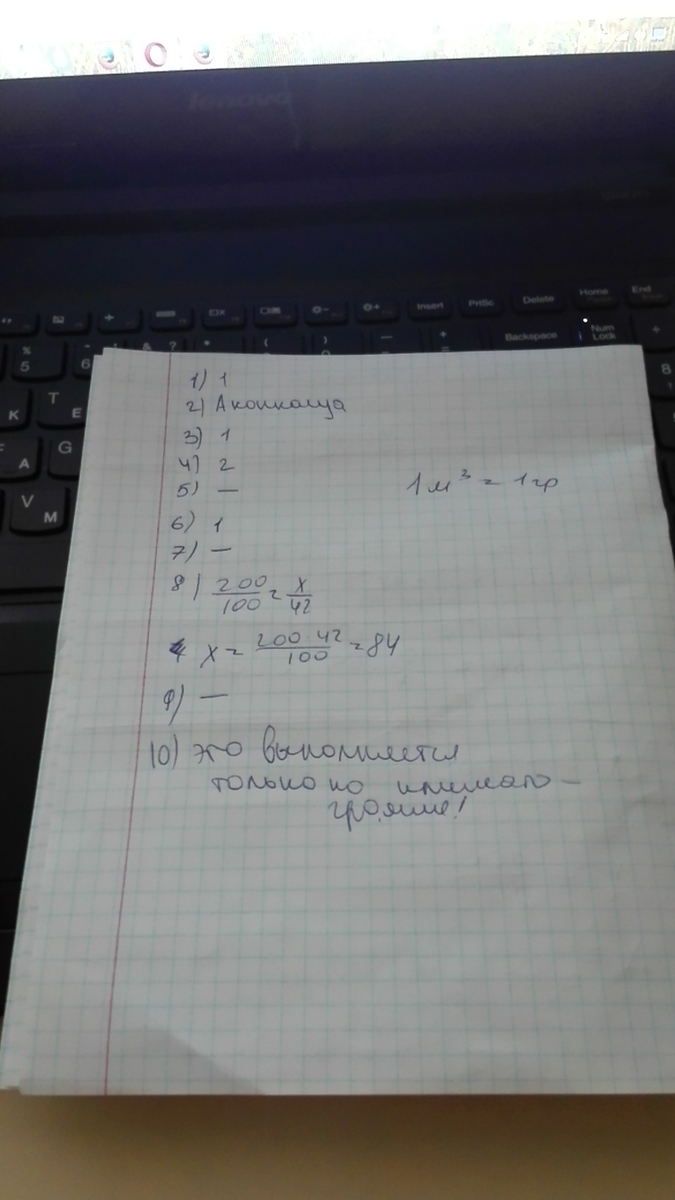 lenovo
Insert PrtSc Delete Home End
Backspace Num Lock
% 5 6 & ? * ( ) — + = ÷
К Т Е 8
А G
V М
1) 1
2) Аконкагуа
3) 1
4) 2
5) —
1 м³ = 1 гр
6) 1
7) —
8) 200/100 = x/42
x = 200 42/100 = 84
9) —
10) это выполняется
только по климато-
грамме!